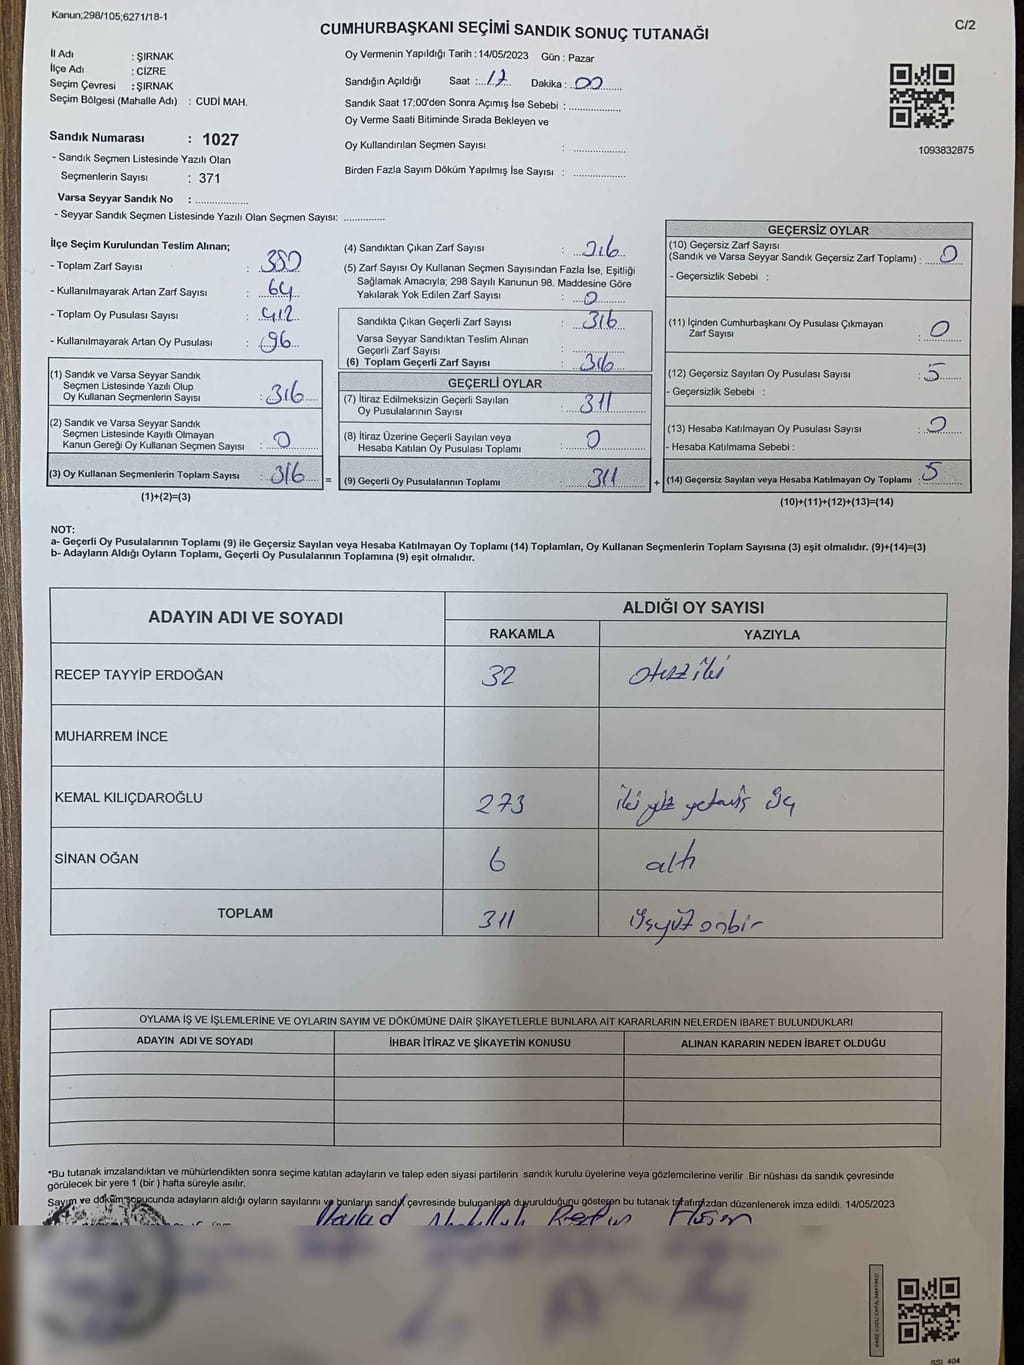 Kanun;298/105;6271/18-1
C/2
CUMHURBAŞKANI SEÇİMİ SANDIK SONUÇ TUTANAĞI
İl Adı : ŞIRNAK
İlçe Adı : CİZRE
Seçim Çevresi : ŞIRNAK
Seçim Bölgesi (Mahalle Adı) : CUDİ MAH.
Sandık Numarası : 1027
- Sandık Seçmen Listesinde Yazılı Olan
Seçmenlerin Sayısı : 371
Varsa Seyyar Sandık No : ...............
- Seyyar Sandık Seçmen Listesinde Yazılı Olan Seçmen Sayısı: ............
Oy Vermenin Yapıldığı Tarih : 14/05/2023 Gün : Pazar
Sandığın Açıldığı Saat : 17 Dakika : 00
Sandık Saat 17:00'den Sonra Açımış İse Sebebi : ...............
Oy Verme Saati Bitiminde Sırada Bekleyen ve
Oy Kullandırılan Seçmen Sayısı : ...............
Birden Fazla Sayım Döküm Yapılmış İse Sayısı : ...............
1093832875
İlçe Seçim Kurulundan Teslim Alınan;
- Toplam Zarf Sayısı : 380
- Kullanılmayarak Artan Zarf Sayısı : 64
- Toplam Oy Pusulası Sayısı : 412
- Kullanılmayarak Artan Oy Pusulası : 96
(1) Sandık ve Varsa Seyyar Sandık
Seçmen Listesinde Yazılı Olup
Oy Kullanan Seçmenlerin Sayısı : 316
(2) Sandık ve Varsa Seyyar Sandık
Seçmen Listesinde Kayıtlı Olmayan
Kanun Gereği Oy Kullanan Seçmen Sayısı : 0
(3) Oy Kullanan Seçmenlerin Toplam Sayısı : 316 =
(1)+(2)=(3)
(4) Sandıktan Çıkan Zarf Sayısı : 316
(5) Zarf Sayısı Oy Kullanan Seçmen Sayısından Fazla İse, Eşitliği
Sağlamak Amacıyla; 298 Sayılı Kanunun 98. Maddesine Göre
Yakılarak Yok Edilen Zarf Sayısı : 0
Sandıkta Çıkan Geçerli Zarf Sayısı : 316
Varsa Seyyar Sandıktan Teslim Alınan
Geçerli Zarf Sayısı : ...............
(6) Toplam Geçerli Zarf Sayısı : 316
GEÇERLİ OYLAR
(7) İtiraz Edilmeksizin Geçerli Sayılan
Oy Pusulalarının Sayısı : 311
(8) İtiraz Üzerine Geçerli Sayılan veya
Hesaba Katılan Oy Pusulası Toplamı : 0
(9) Geçerli Oy Pusulalarının Toplamı : 311 +
GEÇERSİZ OYLAR
(10) Geçersiz Zarf Sayısı
(Sandık ve Varsa Seyyar Sandık Geçersiz Zarf Toplamı) : 0
- Geçersizlik Sebebi :
(11) İçinden Cumhurbaşkanı Oy Pusulası Çıkmayan
Zarf Sayısı : 0
(12) Geçersiz Sayılan Oy Pusulası Sayısı : 5
- Geçersizlik Sebebi :
(13) Hesaba Katılmayan Oy Pusulası Sayısı : 0
- Hesaba Katılmama Sebebi :
(14) Geçersiz Sayılan veya Hesaba Katılmayan Oy Toplamı : 5
(10)+(11)+(12)+(13)=(14)
NOT:
a- Geçerli Oy Pusulalarının Toplamı (9) ile Geçersiz Sayılan veya Hesaba Katılmayan Oy Toplamı (14) Toplamları, Oy Kullanan Seçmenlerin Toplam Sayısına (3) eşit olmalıdır. (9)+(14)=(3)
b- Adayların Aldığı Oyların Toplamı, Geçerli Oy Pusulalarının Toplamına (9) eşit olmalıdır.
ADAYIN ADI VE SOYADI ALDIĞI OY SAYISI
RAKAMLA YAZIYLA
RECEP TAYYİP ERDOĞAN 32 otuz iki
MUHARREM İNCE
KEMAL KILIÇDAROĞLU 273 iki yüz yetmiş üç
SİNAN OĞAN 6 altı
TOPLAM 311 üçyüz onbir
OYLAMA İŞ VE İŞLEMLERİNE VE OYLARIN SAYIM VE DÖKÜMÜNE DAİR ŞİKAYETLERLE BUNLARA AİT KARARLARIN NELERDEN İBARET BULUNDUKLARI
ADAYIN ADI VE SOYADI İHBAR İTİRAZ VE ŞİKAYETİN KONUSU ALINAN KARARIN NEDEN İBARET OLDUĞU
*Bu tutanak imzalandıktan ve mühürlendikten sonra seçime katılan adayların ve talep eden siyasi partilerin sandık kurulu üyelerine veya gözlemcilerine verilir .Bir nüshası da sandık çevresinde
görülecek bir yere 1 (bir ) hafta süreyle asılır.
Sayım ve döküm sonucunda adayların aldığı oyların sayılarını ve bunların sandık çevresinde bulunanlara duyurulduğunu gösteren bu tutanak tarafımızdan düzenlenerek imza edildi. 14/05/2023